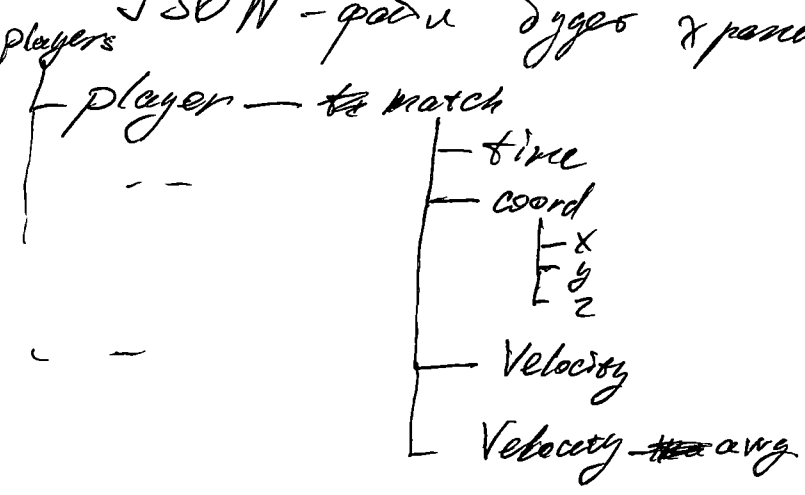 JSON - файл будет хране
players
player — match
time
coord
x
y
z
Velocity
Velocity avg